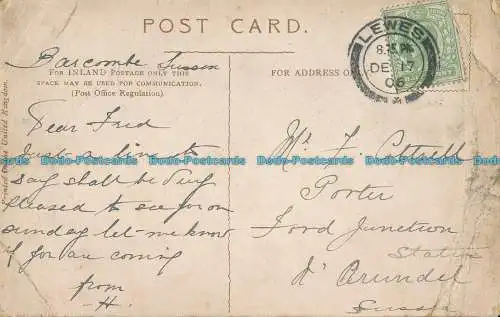 POST CARD.
Barcombe Sussex
FOR INLAND POSTAGE ONLY THIS
SPACE MAY BE USED FOR COMMUNICATION.
(Post Office Regulation).
Dear Fred
Just a line to
say shall be very
pleased to see you on
sunday let me know
if you are coming
from
H.
FOR ADDRESS
LEWES
8.15 PM
DE 17
06
Mr F. Cottrell
Porter
Ford Junction
Station
Nr Arundel
Sussex
United Kingdom.
Dodo-Postcards